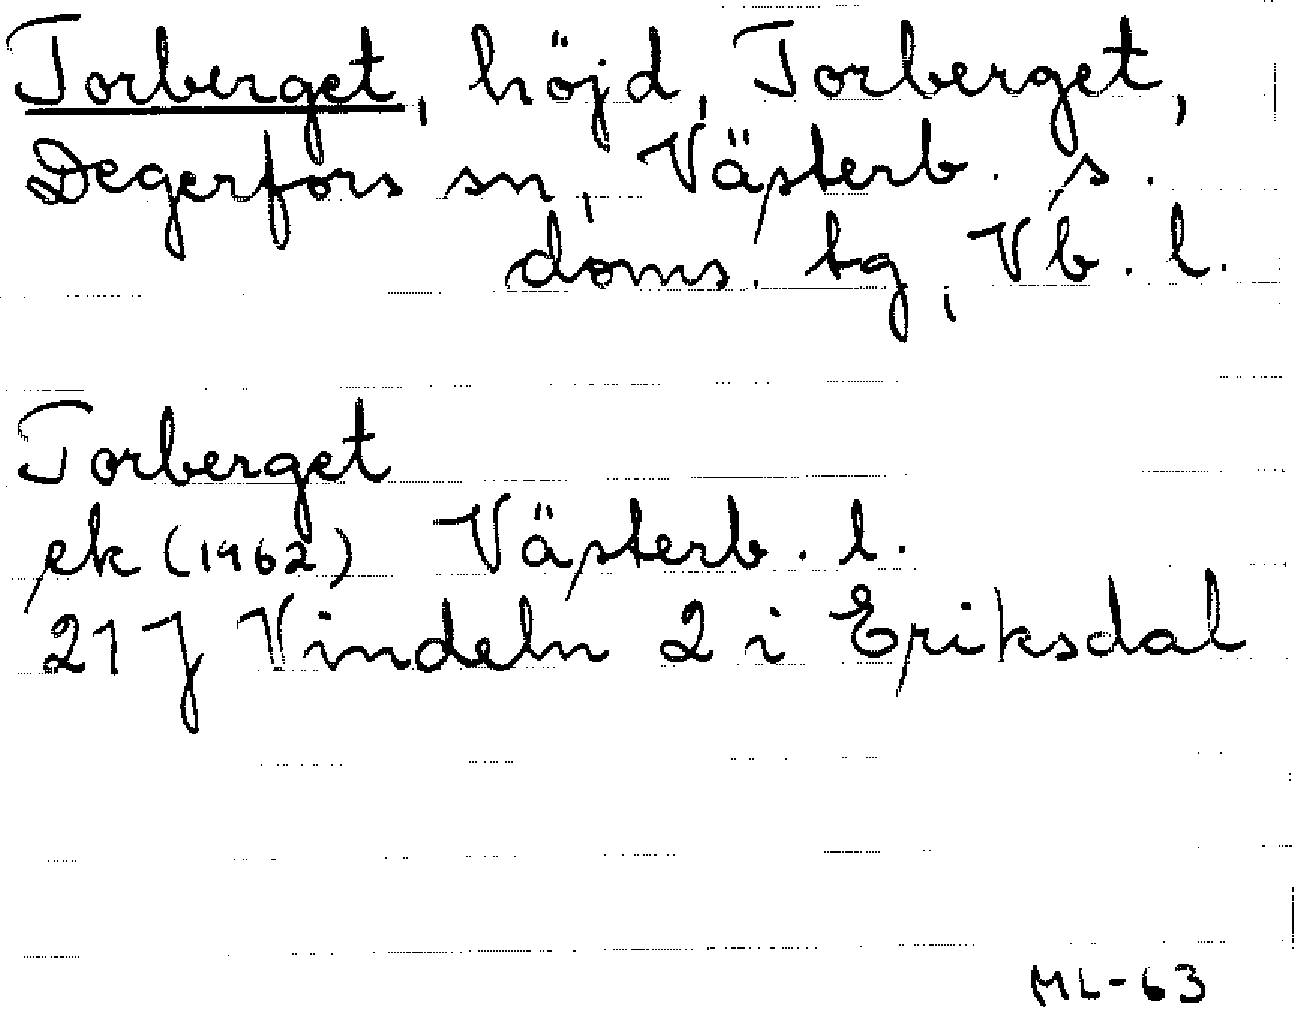 Torberget, höjd, Torberget,
Degerfors sn, Västerb. s.
doms. tg, Vb. l.
Torberget
ek (1962) Västerb. l.
21 J Vindeln 2 i Eriksdal
ML-63